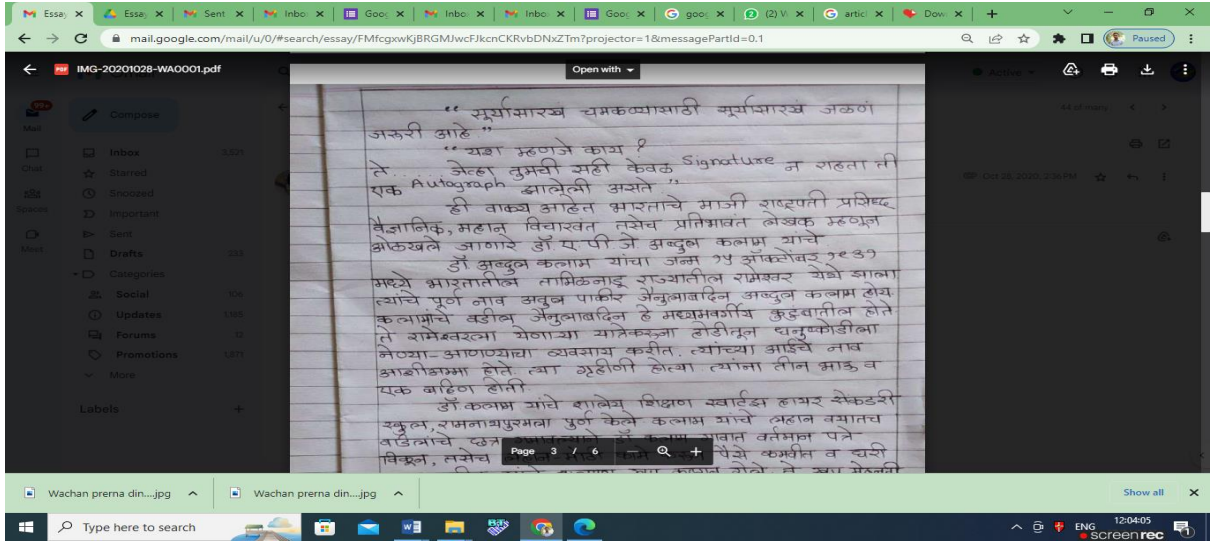 Essay
Essay
Sent
Inbo
Goog
Inbo
Inbo
Goog
goog
(2) W
articl
Dow
mail.google.com/mail/u/0/#search/essay/FMfcgxwKjBRGMJwcFJkcnCKRvbDNxZTm?projector=1&messagePartId=0.1
Paused
PDF IMG-20201028-WA0001.pdf
Open with
Active
99+
Mail
Compose
44 of many
Chat
Inbox 3,521
Spaces
Starred
Oct 28, 2020, 2:36 PM
Meet
Snoozed
Important
Sent
Drafts 233
Categories
Social
Updates
Forums
Promotions
More
Labels
“ सूर्यासारखं चमकण्यासाठी सूर्यासारखं जळणं
जरुरी आहे ”
“ यश म्हणजे काय ?
ते.... जेव्हा तुमची सही केवळ Signature न राहता ती
एक Autograph झालेली असते ”
ही वाक्य आहेत भारताचे माजी राष्ट्रपती प्रसिध्द
वैज्ञानिक, महान विचारवंत तसेच प्रतिभावंत लेखक म्हणून
ओळखले जाणारे डॉ. ए. पी. जे अब्दुल कलाम यांचे
डॉ. अब्दुल कलाम यांचा जन्म १५ ऑक्टोंबर १९३१
मध्ये भारतातील तामिळनाडू राज्यातील रामेश्वर येथे झाला
त्यांचे पूर्ण नाव अवुल पाकीर जैनुलाबदिन अब्दुल कलाम होय.
कलामांचे वडील जैनुलाबदिन हे मध्यमवर्गीय कुटुंबातील होते
ते रामेश्वरला येणाऱ्या यात्रेकरुंना होडीतून धनुष्कोडीला
नेण्या-आणण्याचा व्यवसाय करीत. त्यांच्या आईचे नाव
आशीअम्मा होते. त्या गृहीणी होत्या त्यांना तीन भाऊ व
एक बहिण होती.
डॉ. कलाम यांचे शालेय शिक्षण स्वार्टझ हायर सेकंडरी
स्कूल, रामनाथपुरमला पुर्ण केले कलाम यांचे लहान वयातच
वडिलांचे छत्र डॉ कलाम गावात वर्तमान पत्रे
विकून, तसेच पैसे कमवीत व घरी
Page 3 / 6
Wachan prerna din....jpg
Wachan prerna din....jpg
Show all
Type here to search
ENG
12:04:05
screenrec